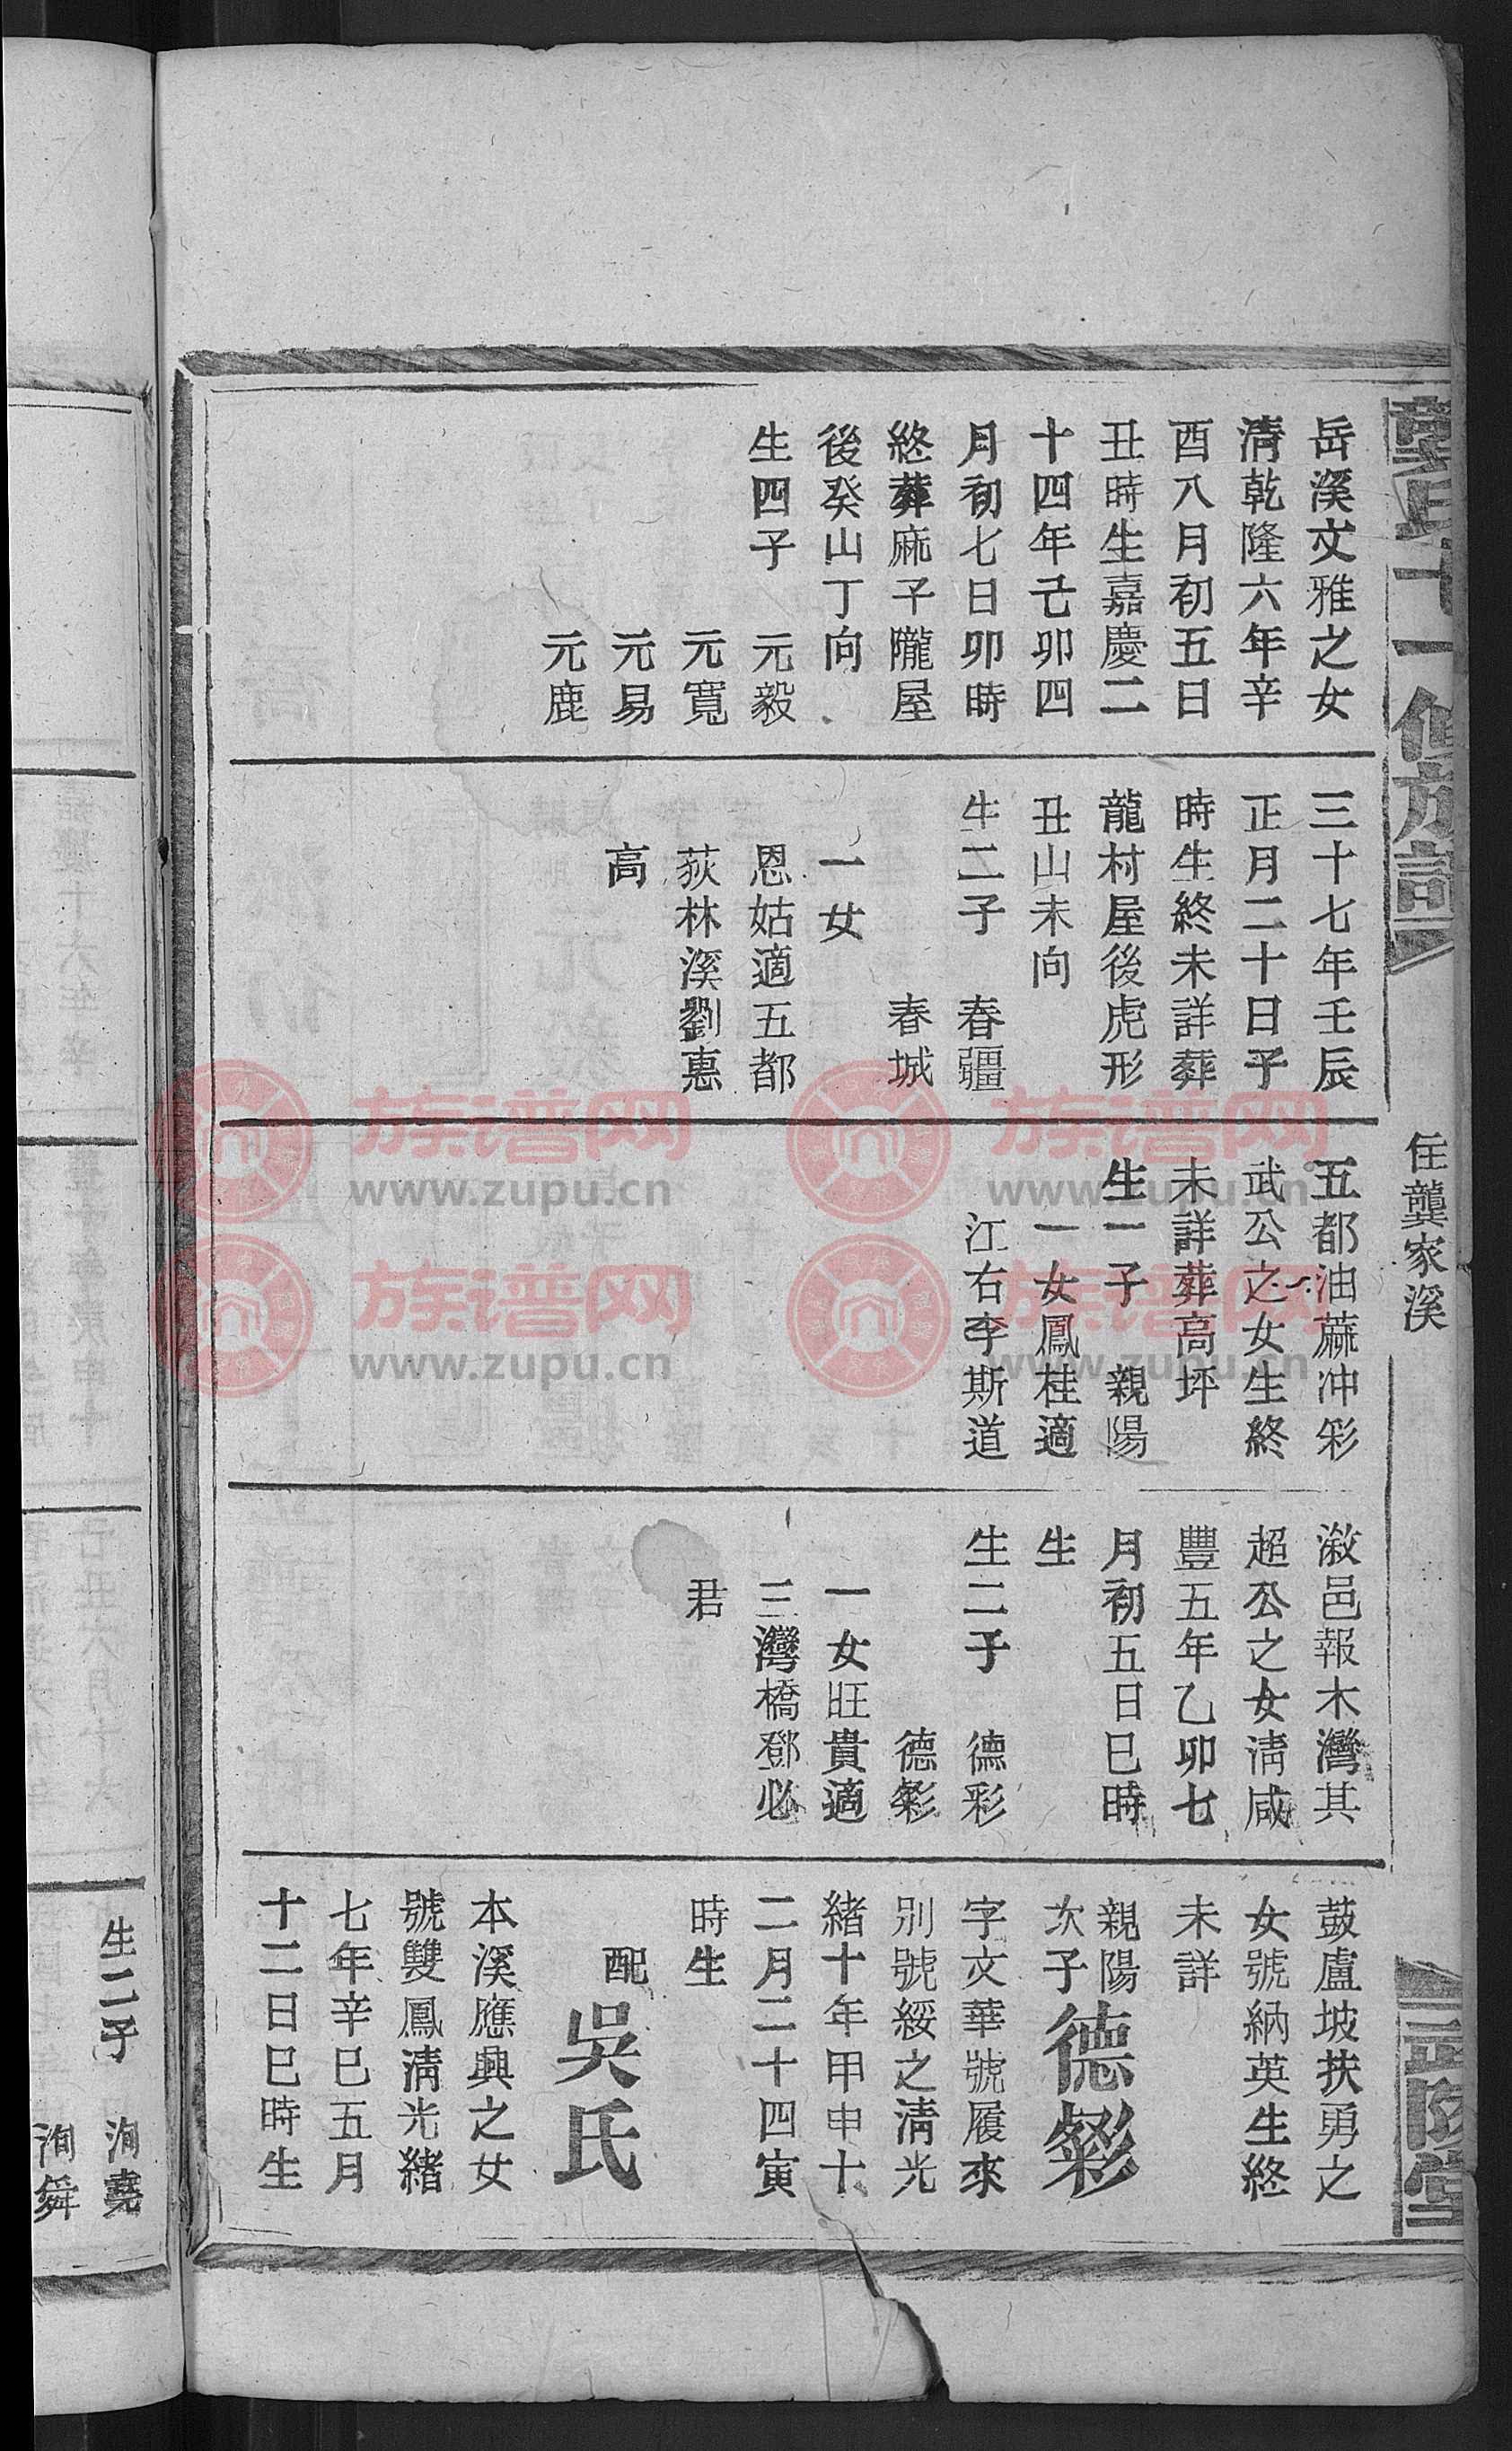 龔氏十一修族譜
住龔家溪
武陵堂
岳溪文雅之女
清乾隆六年辛
酉八月初五日
丑時生嘉慶二
十四年己卯四
月初七日卯時
終葬麻子隴屋
後癸山丁向
生四子 元毅
元寬
元易
元鹿
三十七年壬辰
正月二十日子
時生終未詳葬
龍村屋後虎形
丑山未向
生二子 春疆
春城
一女
恩姑適五都
荻林溪劉惠
高
五都油蔴冲彩
武公之女生終
未詳葬高坪
生一子 親陽
一女鳳桂適
江右李斯道
溆邑報木灣其
超公之女清咸
豐五年乙卯七
月初五日巳時
生
生二子 德彩
德粲
一女旺貴適
三灣橋鄧必
君
蔎盧坡扶勇之
女號納英生終
未詳
親陽
次子 德粲
字文華號履來
別號綏之清光
緒十年甲申十
二月二十四寅
時生
配 吳氏
本溪應興之女
號雙鳳清光緒
七年辛巳五月
十二日巳時生
生二子 洵堯
洵舜
族谱网
www.zupu.cn
族谱网
www.zupu.cn
族谱网
www.zupu.cn
族谱网
www.zupu.cn